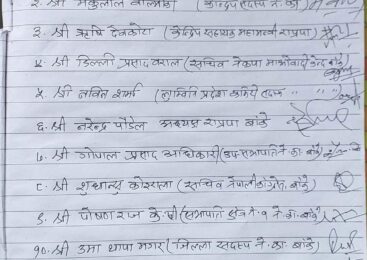 २. श्री मकुलाल वाल्मीकी (केन्द्रिय सदस्य ने.का)
३. श्री ऋषि देवकोटा (केन्द्रिय सहायक महामन्त्री राप्रपा)
४. श्री डिल्ली प्रसाद काल (सचिव नेकपा माओवादी केन्द्र बाँके)
५. श्री नविन शर्मा (लुम्बिनी प्रदेश कमिटी सदस्य " " )
६. श्री नरेन्द्र पौडेल अध्यक्ष राप्रपा बाँके
७. श्री गोपाल प्रसाद अधिकारी (उप सभापति ने.का. बाँके)
८. श्री शुधान्सु कोइराला (सचिव नेपाली काँग्रेस, बाँके)
९. श्री पोषण राज के.सी (सभापति क्षेत्र नं १ ने.का. बाँके)
१०. श्री उमा थापा मगर (जिल्ला सदस्य ने.का. बाँके)